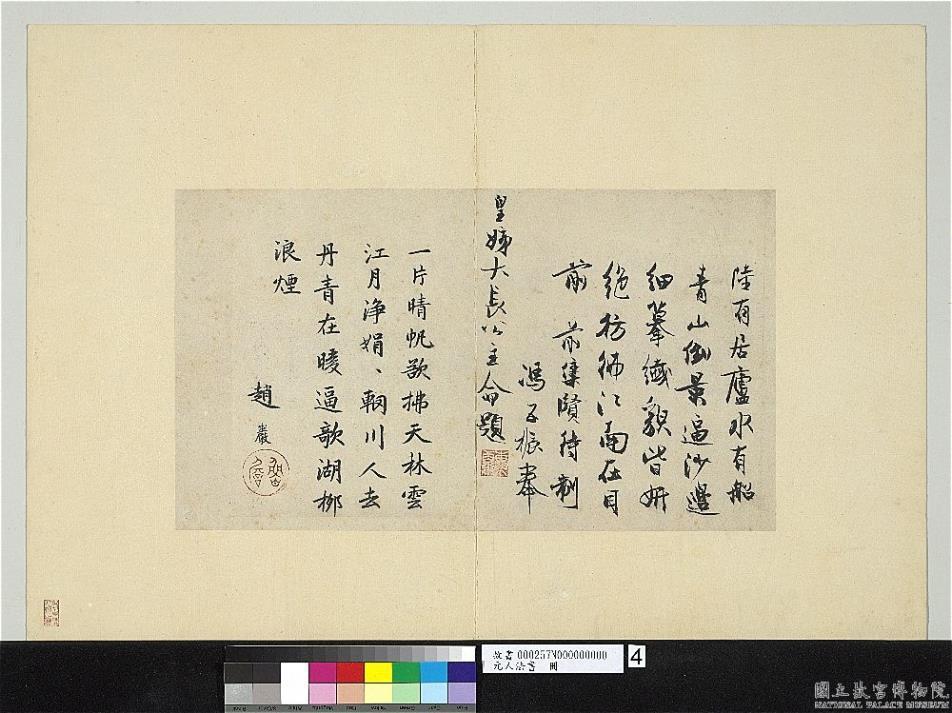 陸有居廬水有船
青山倒景逼沙邊
細摹纖貌皆妍
絕彷彿江南在目
前　前集賢待制
馮子振奉
皇姊大長公主命題
一片晴帆欲拂天林雲
江月淨娟、輞川人去
丹青在暖逼歌湖柳
浪煙
趙巖
故書 000257N000000000
元人法書 冊
4
國立故宮博物院
NATIONAL PALACE MUSEUM